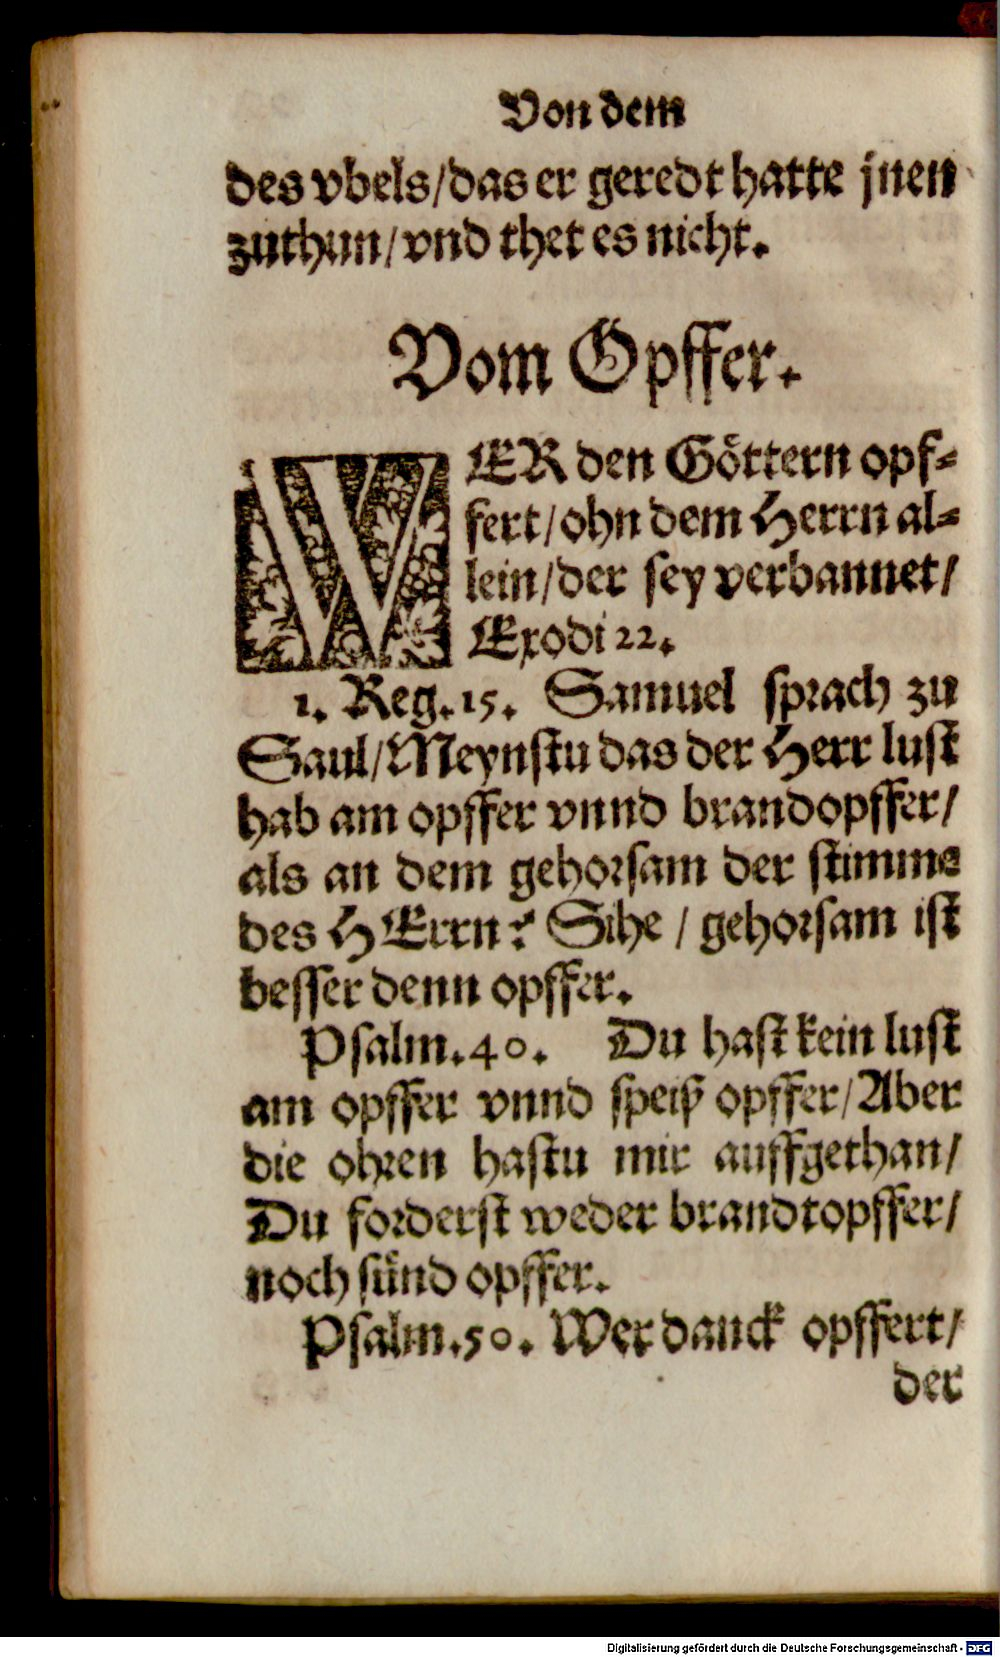 Von dem
des vbels/das er geredt hatte jnen
zuthun/vnd thet es nicht.
Vom Opffer.
WER den Göttern opf-
fert/ohn dem Herrn al-
lein/der sey verbannet/
Exodi 22.
1. Reg. 15. Samuel sprach zu
Saul/Meynstu das der Herr lust
hab am opffer vnnd brandopffer/
als an dem gehorsam der stimme
des HErrn? Sihe / gehorsam ist
besser denn opffer.
Psalm. 40. Du hast kein lust
am opffer vnnd speiß opffer/Aber
die ohren hastu mir auffgethan/
Du forderst weder brandtopffer/
noch sünd opffer.
Psalm. 50. Wer danck opffert/
der
Digitalisierung gefördert durch die Deutsche Forschungsgemeinschaft - DFG